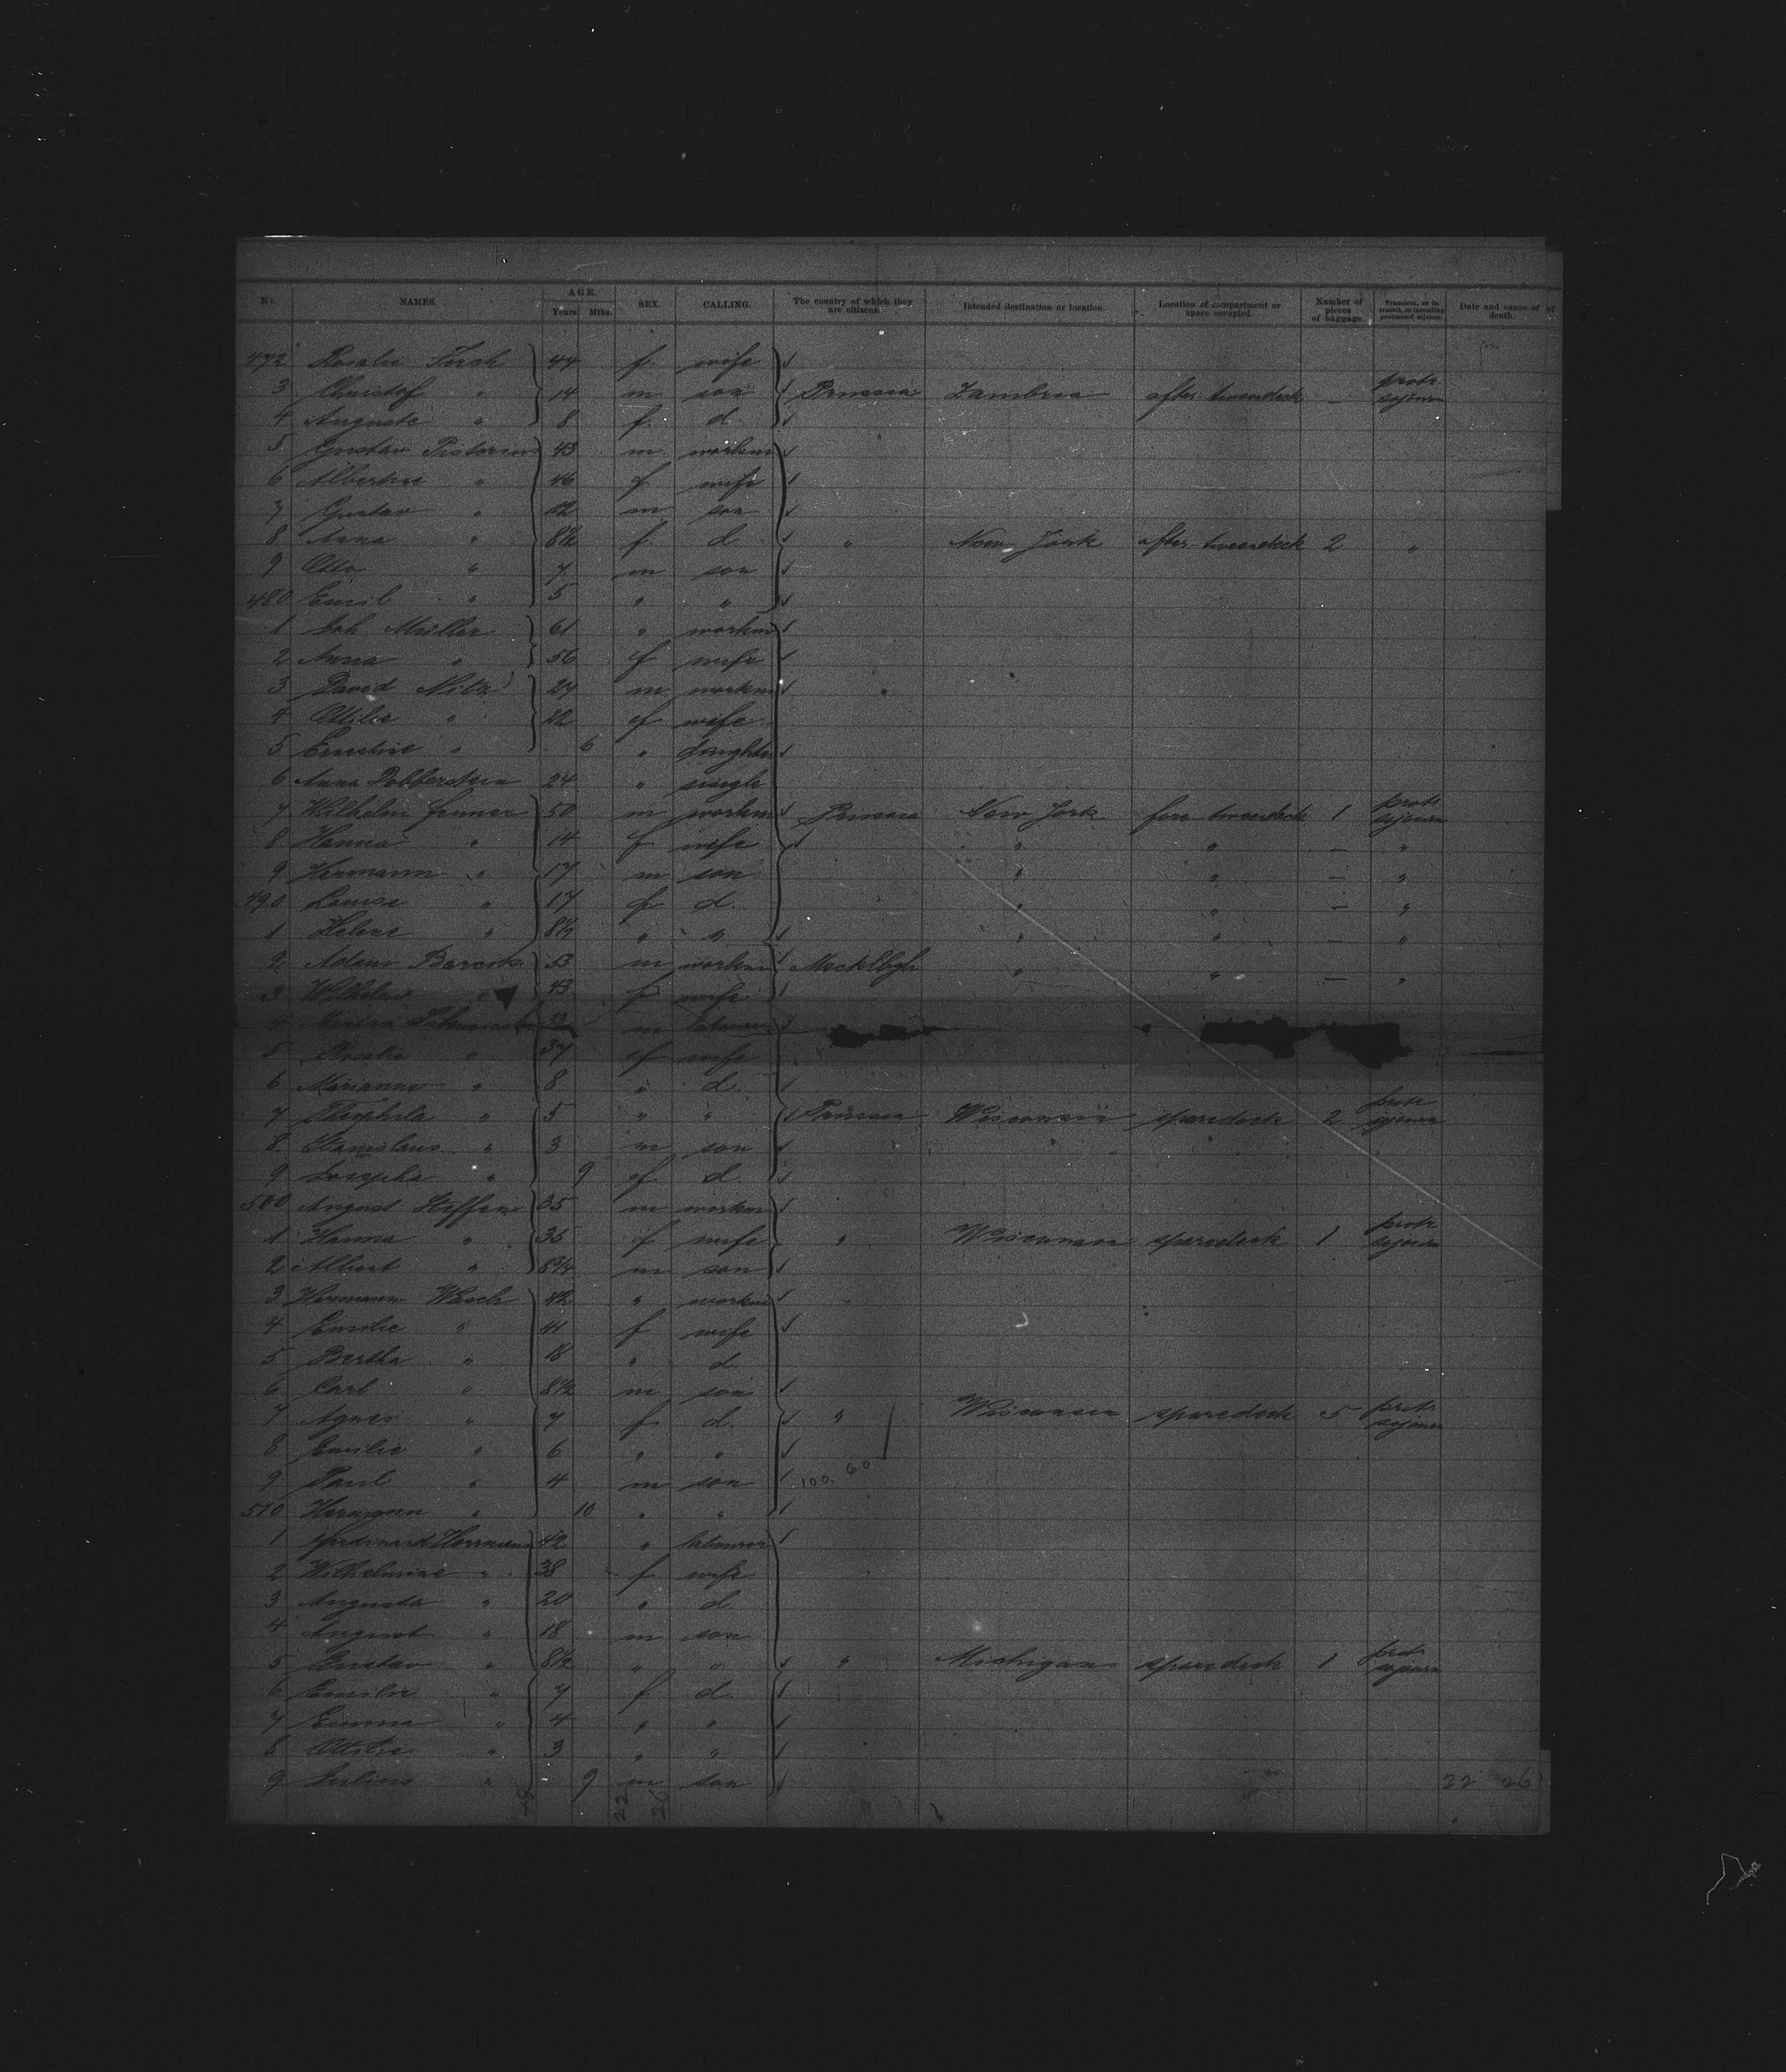 No. NAMES. AGE. Years. Mths. SEX. CALLING. The country of which they are citizens. Intended destination or location. Location of compartment or space occupied. Number of pieces of baggage. Transient, or in transit, or intending protracted sojourn. Date and cause of death.
472 Rosalie 44 f. wife
3 Christof " 14 m son Prussia after tweendeck — protr. sojourn
4 Auguste " 8 f. d.
5 Gustav Pistorius 43 m. workm
6 Albertine " 46 f wife
7 Gustav " 12 m son
8 Anna " 8½ f d " New York after tweendeck 2 "
9 Otto " 7 m son
480 Emil " 5 " "
1 Joh. Müller 61 " workm
2 Anna " 56 f wife
3 David Nitz 27 m workm
4 Ottilie " 22 f wife
5 Ernestine " 6 " daughter
6 Anna Dobberstein 24 " single
7 Wilhelm Jenner 50 m workm Prussia New York fore tweendeck 1 protr. sojourn
8 Hanna " 14 f wife " " — "
9 Hermann " 17 m son " " — "
490 Louise " 17 f d. " " — "
1 Helene " 8½ " " " " — "
2 53 m workm Mecklbgh " " — "
3 " 43 f wife
4 m labourer
5 Rosalie " 37 f wife
6 Marianna " 8 " d.
7 Theophila " 5 " " Prussia Wisconsin sparedeck 2 protr sojourn
8 Stanislaus " 3 m son
9 Josepha " 9 f d.
500 August Steffen 35 m workm
1 Hanna " 35 f wife " Wisconsin sparedeck 1 protr sojourn
2 Albert " 8¾ m son
3 Hermann 42 " workm
4 Emilie " 41 f wife
5 Bertha " 18 " d
6 Carl " 8½ m son
7 Agnes " 7 f d. " Wisconsin sparedeck 5 protr. sojourn
8 Emilie " 6 " "
9 Paul " 4 m son 100. 60
510 Hermann " 10 " "
1 Ferdinand Herrmann 42 " labourer
2 Wilhelmine " 38 f wife
3 Augusta " 20 " d.
4 August " 18 m son
5 Gustav " 8½ " " " Michigan sparedeck 1 protr. sojourn
6 Emilie " 7 f d.
7 Emma " 4 " "
8 Ottilie " 3 " "
9 Julius " 9 m son 22 26
48 22 26